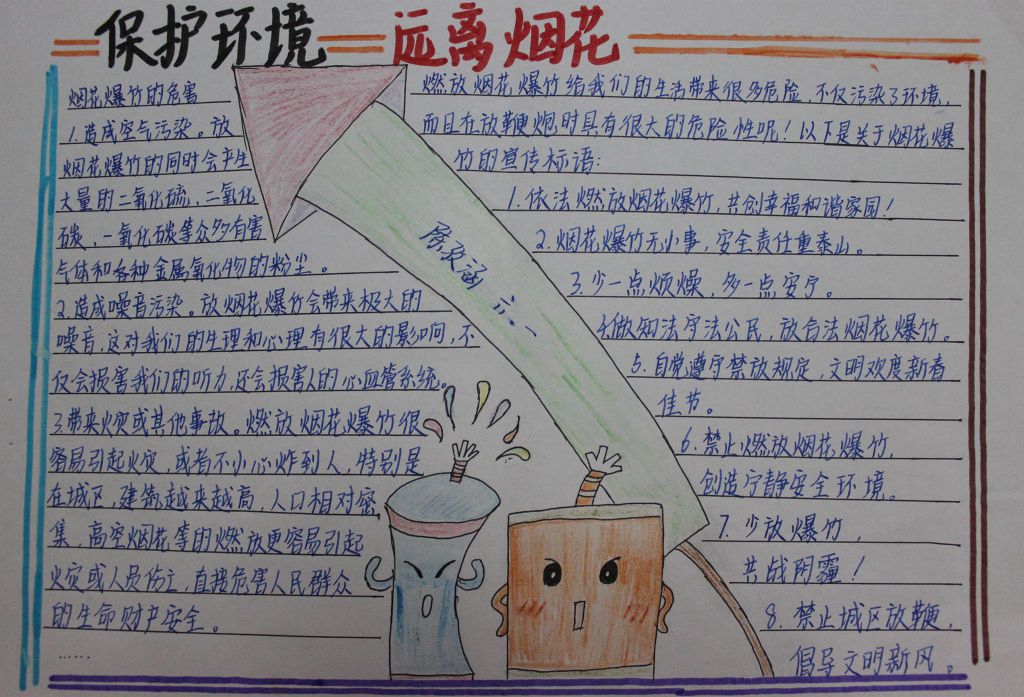 保护环境 远离烟花
烟花爆竹的危害
1.造成空气污染。放
烟花爆竹的同时会产生
大量的二氧化硫、二氧化
碳、一氧化碳等众多有害
气体和各种金属氧化物的粉尘。
2.造成噪音污染。放烟花爆竹会带来极大的
噪音,这对我们的生理和心理有很大的影响,不
仅会损害我们的听力,还会损害人的心血管系统。
3.带来火灾或其他事故。燃放烟花爆竹很
容易引起火灾,或者不小心炸到人,特别是
在城区,建筑越来越高,人口相对密
集,高空烟花等的燃放更容易引起
火灾或人员伤亡,直接危害人民群众
的生命财产安全。
……
六.一
燃放烟花爆竹给我们的生活带来很多危险,不仅污染了环境,
而且在放鞭炮时具有很大的危险性呢!以下是关于烟花爆
竹的宣传标语:
1.依法燃放烟花爆竹,共创幸福和谐家园!
2.烟花爆竹无小事,安全责任重泰山。
3.少一点烦燥,多一点安宁。
4.做知法守法公民,放合法烟花爆竹。
5.自觉遵守禁放规定,文明欢度新春
佳节。
6.禁止燃放烟花爆竹,
创造宁静安全环境。
7.少放爆竹,
共战阴霾!
8.禁止城区放鞭,
倡导文明新风。